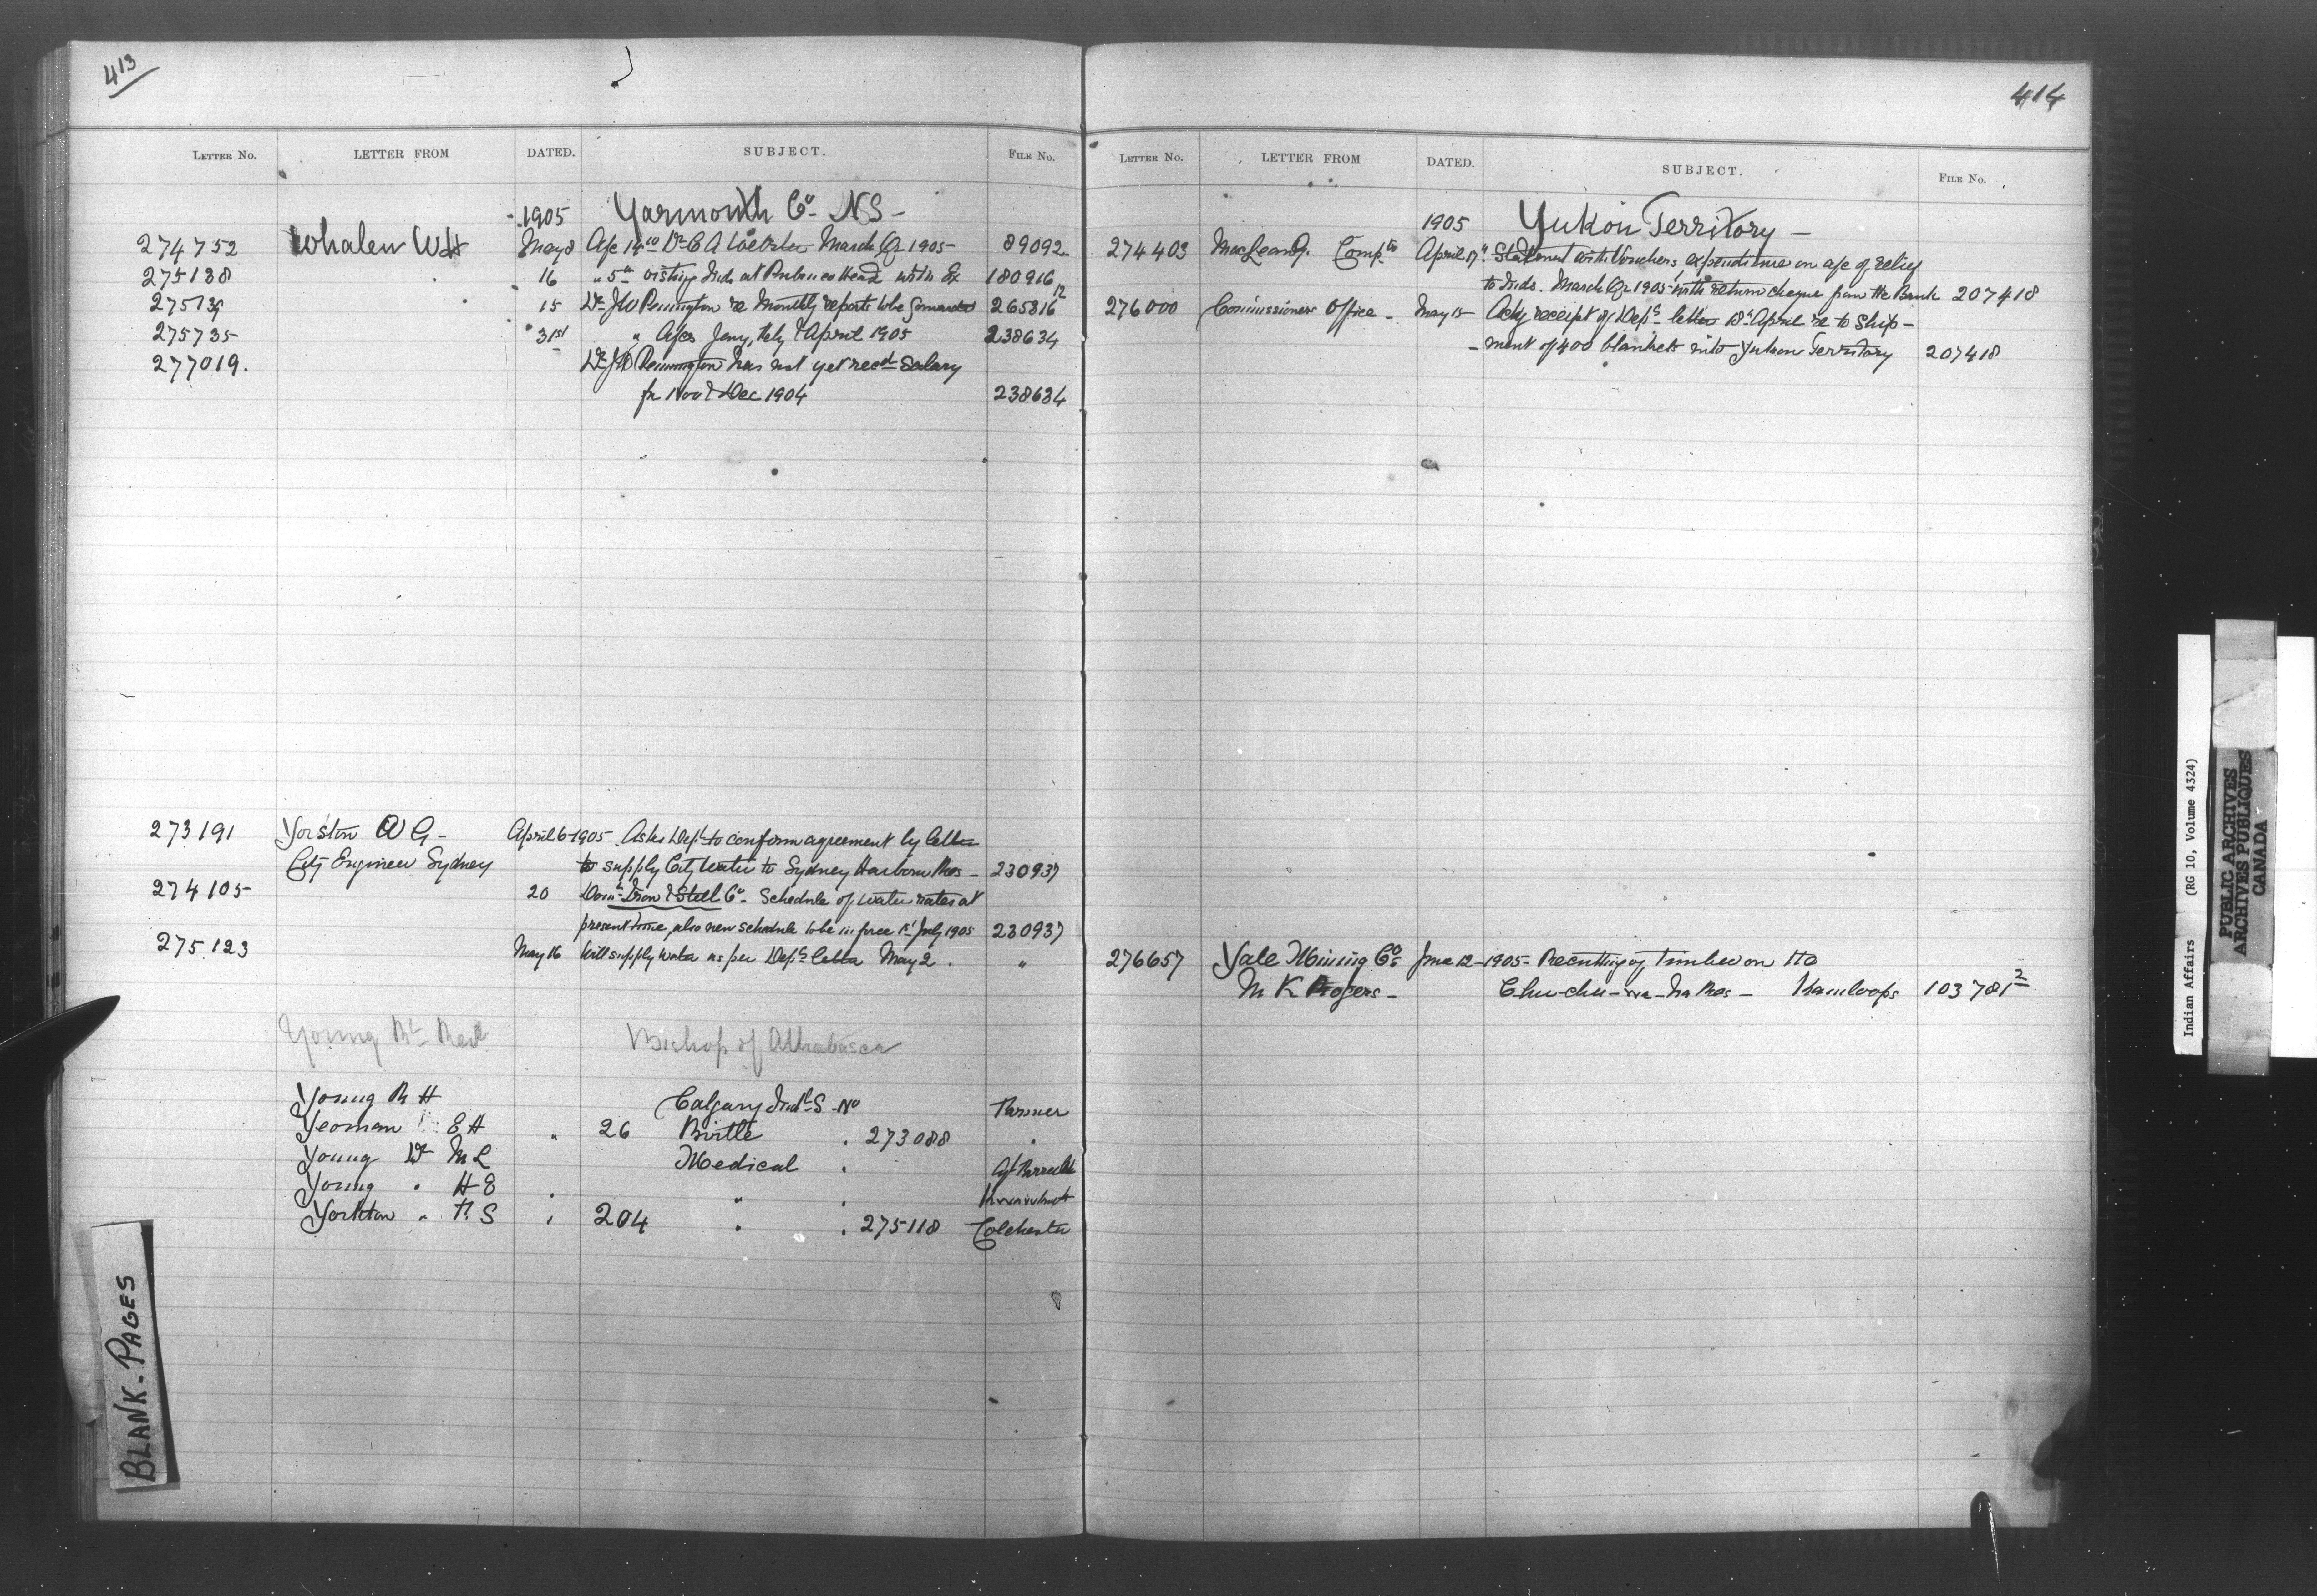 413
LETTER No. LETTER FROM DATED. SUBJECT. FILE No.
1905 Yarmouth Co - NS -
274752 Whalen WH May 8 A/c 14.00 Dr C A Webster March Qr 1905 - 89092
275138 16 " 5.00 visiting Inds at Head with Ex 180916
275139 15 Dr JW Pennington re Monthly reports to be forwarded 265816 12
275735 " 31st " A/cs Jany, Feby & April 1905 238634
277019. Dr JW Pennington has not yet recd Salary
for Nov & Dec 1904 238634
273191 Yorston W G - April 6 1905 Asks Dept to confirm agreement by letter
City Engineer Sydney to supply City Water to Sydney Harbour Res - 230937
274105 20 Domn Iron & Steel Co - Schedule of water rates at
present time, also new schedule to be in force 1st July 1905 230937
275123 May 16 Will supply water as per Depts letter May 2. "
Young Rt Revd Bishop of Athabasca
Young R H Calgary Indl S. No Farmer
Yeoman E H " 26 Birtle . 273088 "
Young Dr M L Medical .
Young " H E . " .
Yorkton " F. S " 204 " . 275118 Colchester
BLANK-PAGES
414
LETTER No. LETTER FROM DATED. SUBJECT. FILE No.
1905 Yukon Territory -
274403 MacLean Compt. April 17 " Statement with Vouchers, expenditure on a/c of relief
to Inds. March Qr 1905 with return cheques from the Bank 207418
276000 Commissioners Office - May 15 - Ackg receipt of Depts letter 18th April re to Ship -
- ment of 400 blankets into Yukon Territory 207418
276657 Yale Mining Co June 12 - 1905 - Re cutting of timber on the
M K Rogers - Chu-chu-wa-ha Res - Kamloops 103781 2
Indian Affairs (RG 10, Volume 4324)
PUBLIC ARCHIVES
ARCHIVES PUBLIQUES
CANADA